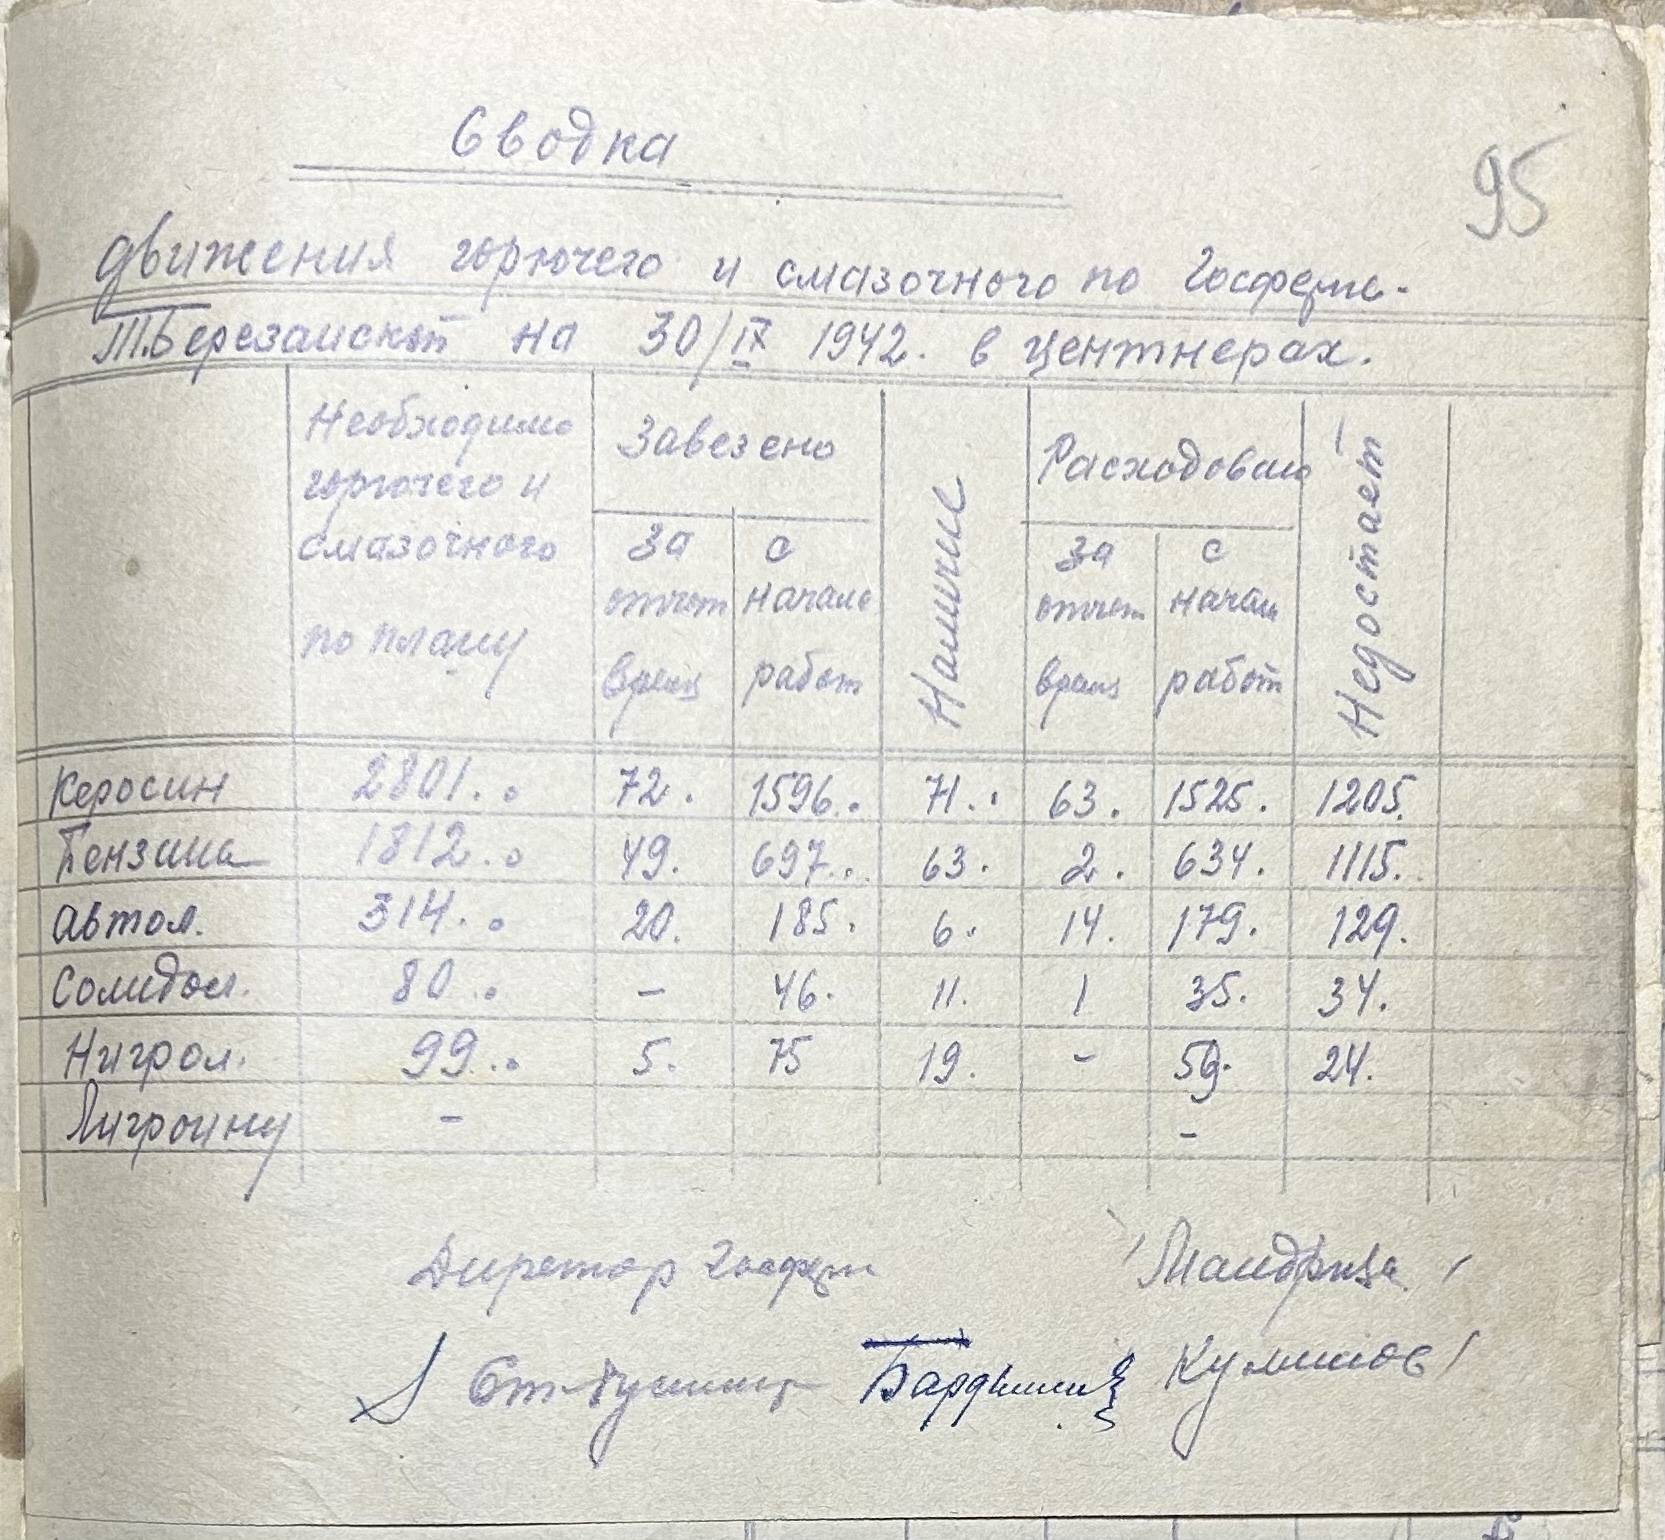 Сводка
95
движения горючего и смазочного по Госферме
Т.Березанской на 30/IX 1942. в центнерах.
Необходимо горючего и смазочного по плану
Завезено
за отчет время
с начала работ
Наличие
Расходовано
за отчет время
с начала работ
Недостает
Керосин 2801.. 72. 1596.. 71.. 63. 1525. 1205.
Бензина 1812.. 49. 697... 63. 2. 634. 1115..
Автол. 314.. 20. 185. 6. 14. 179. 129.
Солидол. 80.. - 46. 11. 1 35. 34.
Нигрол. 99.. 5. 75 19. - 59. 24.
Лигроину - -
Директор Госферм /Мандрица/
Куликов/